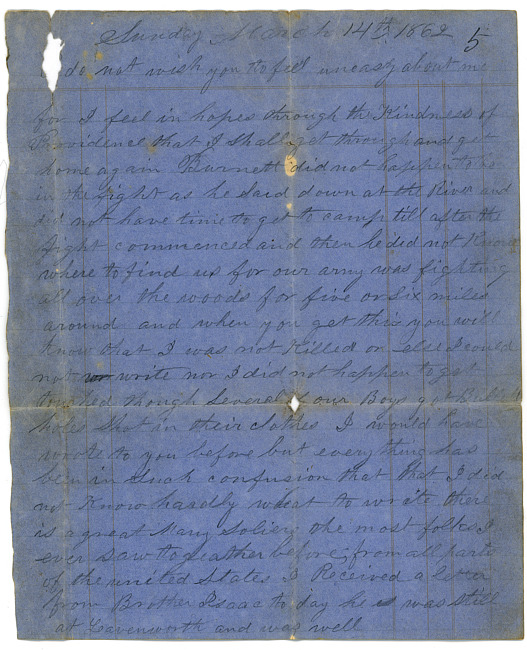 Sunday March 14th 1862 5
do not wish you to feel uneasy about me
for I feel in hopes through the Kindness of
Providence that I shall get through and get
home again Burnett did not happen to be
in the fight as he staid down at the River and
did not have time to get to camp till after the
fight commenced and then he did not Know
where to find us for our army was fighting
all over the woods for five or six miles
around and when you get this you will
Know that I was not Killed or else I could
not write nor I did not happen to get
touched though several of our Boys got Bullet
holes shot in their clothes I would have
wrote to you before but everything has
been in such confusion that that I did
not Know hardly what to write there
is a great Many Soliers the most folks I
ever saw to geather before from all parts
of the united States I Received a letter
from Brother Isaac to day he was still
at Leavenworth and was well